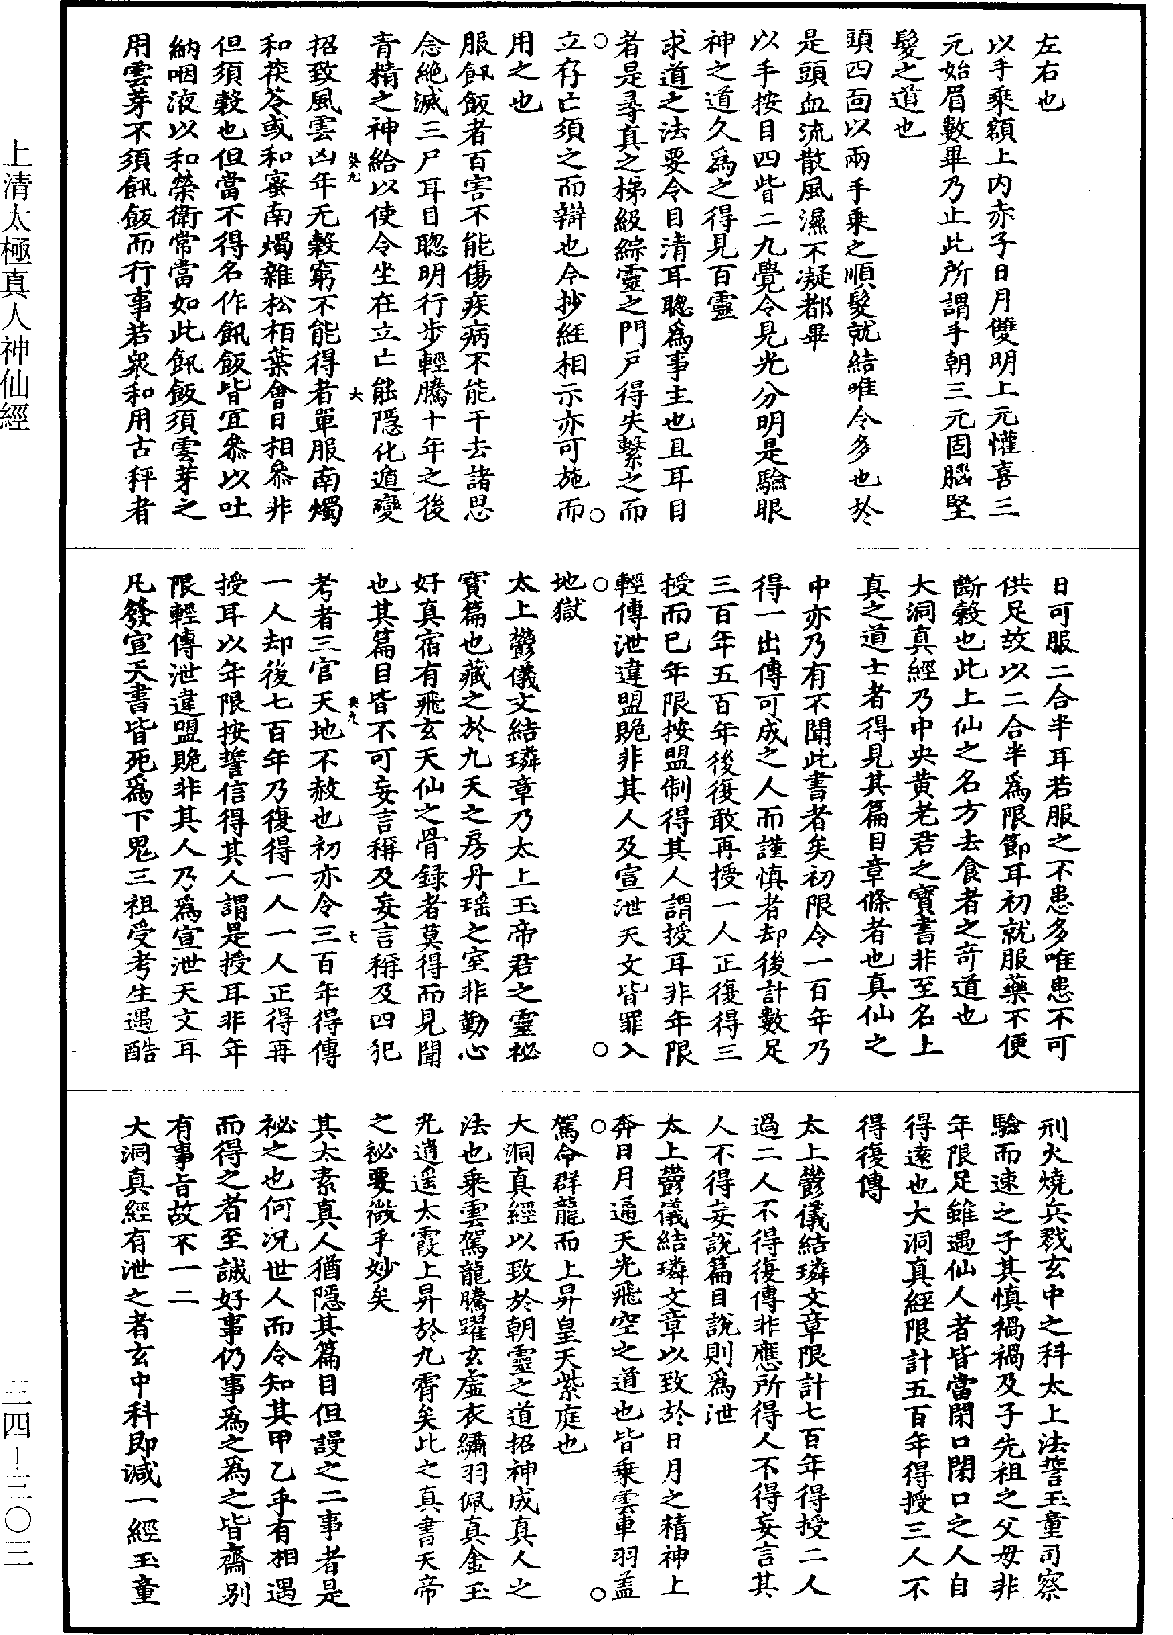 左右也
以手乘額上内赤子日月雙明上元懽喜三
元始眉數畢乃止此所謂手朝三元固腦堅
髮之道也
頭四面以兩手乘之順髮就結唯令多也於
是頭血流散風濕不凝都畢
以手按目四眥二九覺令見光分明是驗眼
神之道久爲之得見百靈
求道之法要令目清耳聰爲事主也且耳目
者是尋真之梯級綜靈之門户得失繫之而
立存亡須之而辯也今抄經相示亦可施而
用之也
服飢飯者百害不能傷疾病不能干去諸思
念絶滅三尸耳目聰明行步輕騰十年之後
青精之神給以使令坐在立亡能隱化遁變
招致風雲凶年无穀窮不能得者單服南燭
和茯苓或和蜜南燭雜松栢葉會日相叅非
但須穀也但當不得名作飢飯皆宜叅以吐
納咽液以和榮衛常當如此飢飯須雲芽之
用雲芽不須飢飯而行事若衆和用古秤者
日可服二合半耳若服之不患多唯患不可
供足故以二合半爲限節耳初就服藥不便
斷穀也此上仙之名方去食者之奇道也
大洞真經乃中央黄老君之寶書非至名上
真之道士者得見其篇目章條者也真仙之
中亦乃有不聞此書者矣初限令一百年乃
得一出傳可成之人而謹慎者却後計數足
三百年五百年後復敢再授一人正復得三
授而已年限按盟制得其人謂授耳非年限
輕傳泄違盟貺非其人及宣泄天文皆罪入
地獄
太上鬱儀文結璘章乃太上玉帝君之靈祕
寶篇也藏之於九天之房丹瑶之室非勤心
好真宿有飛玄天仙之骨録者莫得而見聞
也其篇目皆不可妄言稱及妄言稱及四犯
考者三官天地不赦也初亦令三百年得傳
一人却後七百年乃復得一人一人正得再
授耳以年限按誓信得其人謂是授耳非年
限輕傳泄違盟貺非其人乃爲宣泄天文耳
凡發宣天書皆死爲下鬼三祖受考生遇酷
刑火燒兵戮玄中之科太上法誓玉童司察
驗而速之子其慎禍禍及子先祖之父母非
年限足雖遇仙人者皆當閉口閉口之人自
得遠也大洞真經限計五百年得授三人不
得復傳
太上鬱儀結璘文章限計七百年得授二人
過二人不得復傳非應所得人不得妄言其
人不得妄説篇目説則爲泄
太上鬱儀結璘文章以致於日月之精神上
奔日月通天光飛空之道也皆乘雲車羽蓋
駕命群龍而上昇皇天紫庭也
大洞真經以致於朝靈之道招神成真人之
法也乘雲駕龍騰躍玄虚衣繡羽佩真金玉
光逍遥太霞上昇於九霄矣此之真書天帝
之祕要微乎妙矣
其太素真人猶隱其篇目但謾之二事者是
祕之也何況世人而令知其甲乙乎有相遇
而得之者至誠好事仍事爲之爲之皆齋别
有事旨故不一二
大洞真經有泄之者玄中科即減一經玉童
上清太極真人神仙經
三四-三〇三